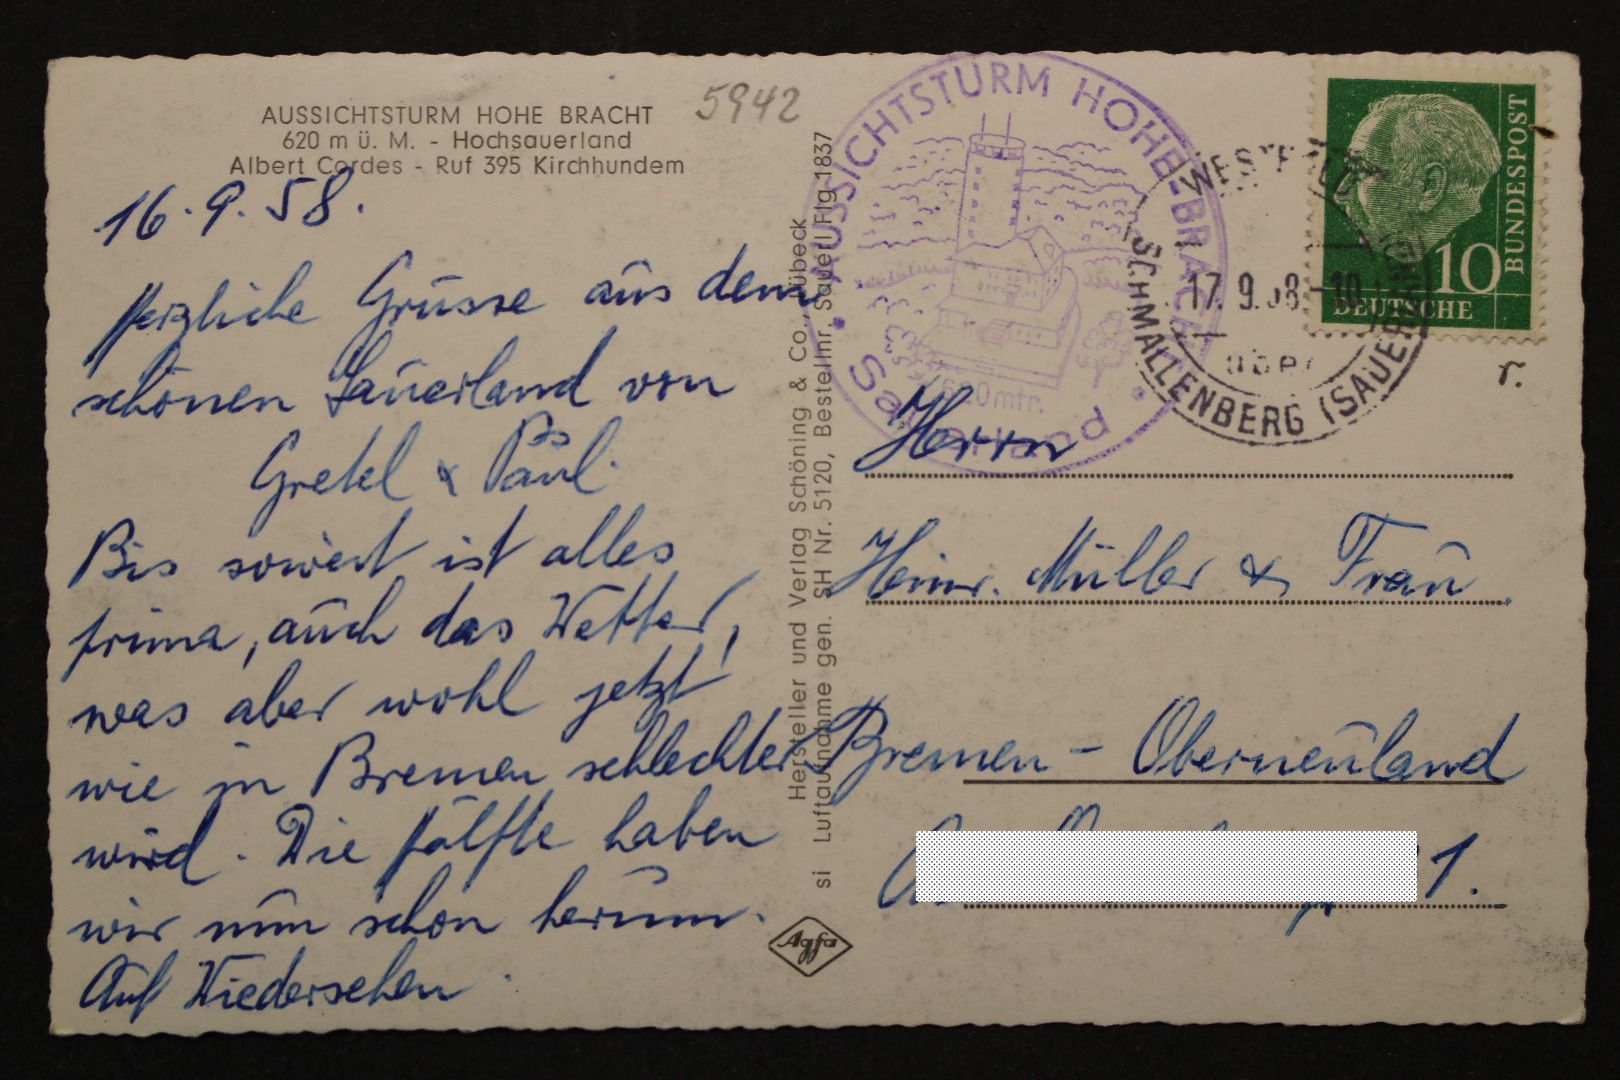 AUSSICHTSTURM HOHE BRACHT
620 m ü. M. - Hochsauerland
Albert Cordes - Ruf 395 Kirchhundem
5942
16.9.58.
Herzliche Grüsse aus dem
schönen Sauerland von
Gretel & Paul.
Bis soweit ist alles
prima, auch das Wetter,
was aber wohl jetzt
wie in Bremen schlechter
wird. Die Hälfte haben
wir nun schon herum.
Auf Wiedersehen.
Hersteller und Verlag Schöning & Co. Lübeck
si Luftaufnahme gen. SH Nr. 5120, Bestellnr. Sauel Flg 1837
Agfa
AUSSICHTSTURM HOHE-BRACHT
620 mtr.
Sauerland
17.9.58-10
über
SCHMALLENBERG (SAUERLAND)
10
DEUTSCHE
BUNDESPOST
r.
Herrn
Heinr. Müller & Frau
Bremen - Oberneuland
1.